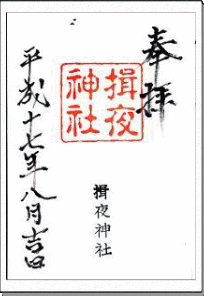 奉拝
揖夜
神社
揖夜神社
平成十七年八月吉日